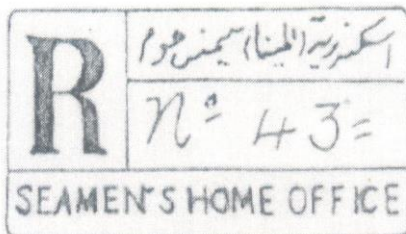 R
اسكندرية (المينا) سيمنس هوم
Nº 43=
SEAMEN'S HOME OFFICE